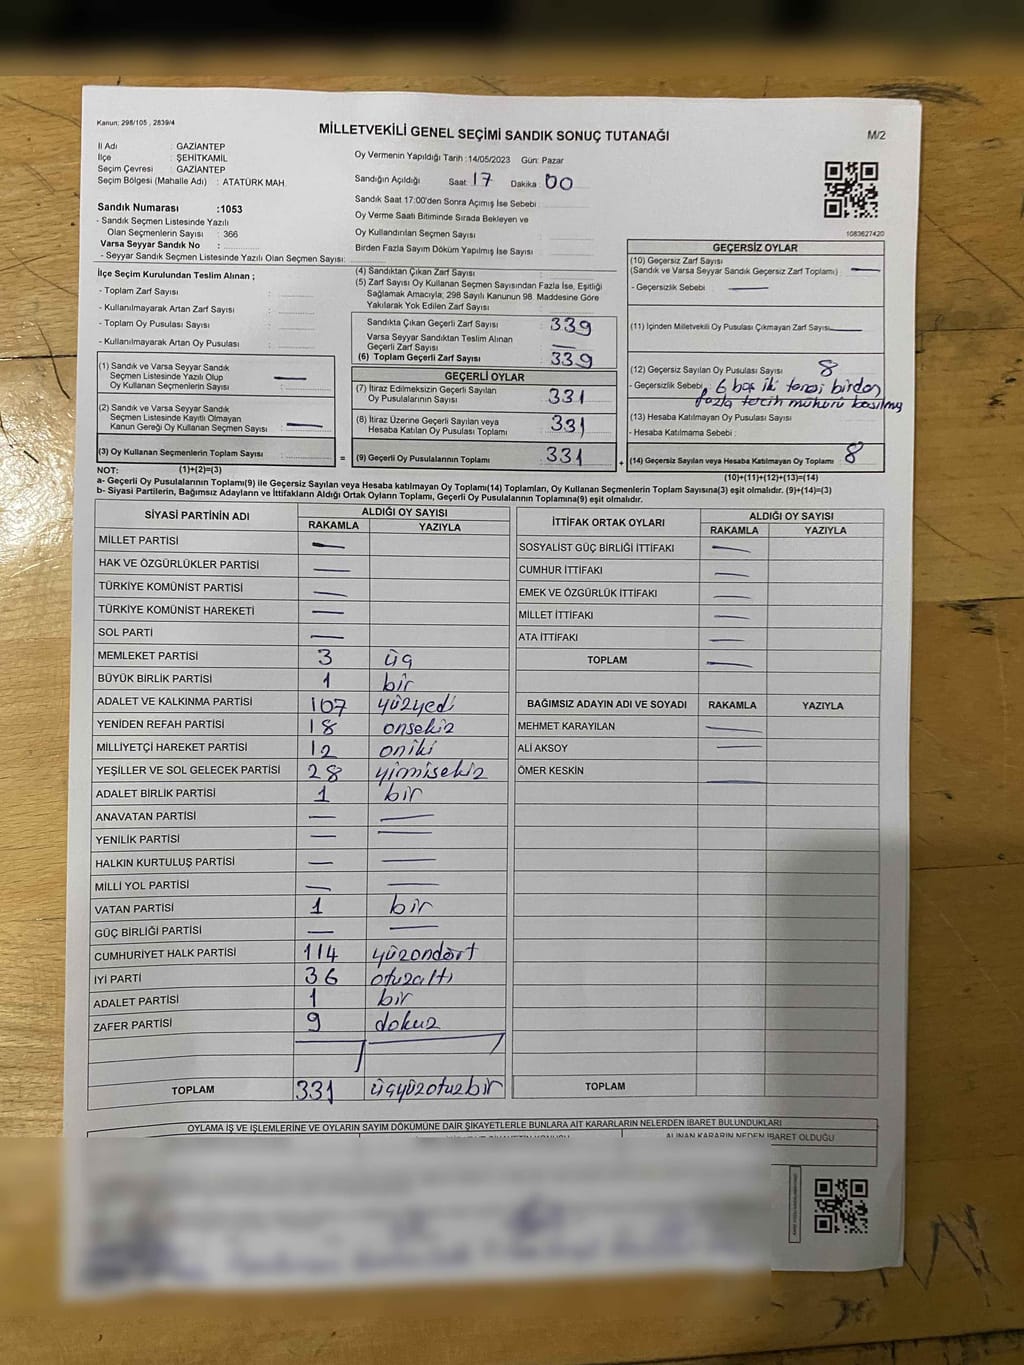 Kanun: 298/105 , 2839/4
MİLLETVEKİLİ GENEL SEÇİMİ SANDIK SONUÇ TUTANAĞI
M/2
İl Adı : GAZİANTEP
İlçe : ŞEHİTKAMİL
Seçim Çevresi : GAZİANTEP
Seçim Bölgesi (Mahalle Adı) : ATATÜRK MAH.
Sandık Numarası :1053
- Sandık Seçmen Listesinde Yazılı
Olan Seçmenlerin Sayısı : 366
Varsa Seyyar Sandık No :
- Seyyar Sandık Seçmen Listesinde Yazılı Olan Seçmen Sayısı:
Oy Vermenin Yapıldığı Tarih :14/05/2023 Gün: Pazar
Sandığın Açıldığı Saat 17 Dakika 00
Sandık Saat 17:00'den Sonra Açımış İse Sebebi :
Oy Verme Saati Bitiminde Sırada Bekleyen ve
Oy Kullandırılan Seçmen Sayısı :
Birden Fazla Sayım Döküm Yapılmış İse Sayısı :
1083627420
İlçe Seçim Kurulundan Teslim Alınan ;
- Toplam Zarf Sayısı :
- Kullanılmayarak Artan Zarf Sayısı :
- Toplam Oy Pusulası Sayısı :
- Kullanılmayarak Artan Oy Pusulası :
(1) Sandık ve Varsa Seyyar Sandık
Seçmen Listesinde Yazılı Olup
Oy Kullanan Seçmenlerin Sayısı : —
(2) Sandık ve Varsa Seyyar Sandık
Seçmen Listesinde Kayıtlı Olmayan
Kanun Gereği Oy Kullanan Seçmen Sayısı : —
(3) Oy Kullanan Seçmenlerin Toplam Sayısı :
(4) Sandıktan Çıkan Zarf Sayısı :
(5) Zarf Sayısı Oy Kullanan Seçmen Sayısından Fazla İse, Eşitliği
Sağlamak Amacıyla; 298 Sayılı Kanunun 98. Maddesine Göre
Yakılarak Yok Edilen Zarf Sayısı :
Sandıkta Çıkan Geçerli Zarf Sayısı : 339
Varsa Seyyar Sandıktan Teslim Alınan
Geçerli Zarf Sayısı : —
(6) Toplam Geçerli Zarf Sayısı : 339
GEÇERLİ OYLAR
(7) İtiraz Edilmeksizin Geçerli Sayılan
Oy Pusulalarının Sayısı : 331
(8) İtiraz Üzerine Geçerli Sayılan veya
Hesaba Katılan Oy Pusulası Toplamı : 331
= (9) Geçerli Oy Pusulalarının Toplamı : 331
GEÇERSİZ OYLAR
(10) Geçersiz Zarf Sayısı
(Sandık ve Varsa Seyyar Sandık Geçersiz Zarf Toplamı) : —
- Geçersizlik Sebebi : —
(11) İçinden Milletvekili Oy Pusulası Çıkmayan Zarf Sayısı —
(12) Geçersiz Sayılan Oy Pusulası Sayısı : 8
- Geçersizlik Sebebi : 6 boş iki tanesi birden
fazla tercih mühürü basılmış
(13) Hesaba Katılmayan Oy Pusulası Sayısı :
- Hesaba Katılmama Sebebi :
+ (14) Geçersiz Sayılan veya Hesaba Katılmayan Oy Toplamı : 8
NOT: (1)+(2)=(3)
(10)+(11)+(12)+(13)=(14)
a- Geçerli Oy Pusulalarının Toplamı(9) ile Geçersiz Sayılan veya Hesaba katılmayan Oy Toplamı(14) Toplamları, Oy Kullanan Seçmenlerin Toplam Sayısına(3) eşit olmalıdır. (9)+(14)=(3)
b- Siyasi Partilerin, Bağımsız Adayların ve İttifakların Aldığı Ortak Oyların Toplamı, Geçerli Oy Pusulalarının Toplamına(9) eşit olmalıdır.
SİYASİ PARTİNİN ADI ALDIĞI OY SAYISI
RAKAMLA YAZIYLA
MİLLET PARTİSİ —
HAK VE ÖZGÜRLÜKLER PARTİSİ —
TÜRKİYE KOMÜNİST PARTİSİ —
TÜRKİYE KOMÜNİST HAREKETİ —
SOL PARTİ —
MEMLEKET PARTİSİ 3 üç
BÜYÜK BİRLİK PARTİSİ 1 bir
ADALET VE KALKINMA PARTİSİ 107 yüzyedi
YENİDEN REFAH PARTİSİ 18 onsekiz
MİLLİYETÇİ HAREKET PARTİSİ 12 oniki
YEŞİLLER VE SOL GELECEK PARTİSİ 28 yirmisekiz
ADALET BİRLİK PARTİSİ 1 bir
ANAVATAN PARTİSİ — —
YENİLİK PARTİSİ — —
HALKIN KURTULUŞ PARTİSİ — —
MİLLİ YOL PARTİSİ — —
VATAN PARTİSİ 1 bir
GÜÇ BİRLİĞİ PARTİSİ — —
CUMHURİYET HALK PARTİSİ 114 yüzondört
İYİ PARTİ 36 otuzaltı
ADALET PARTİSİ 1 bir
ZAFER PARTİSİ 9 dokuz
TOPLAM 331 üçyüzotuzbir
İTTİFAK ORTAK OYLARI ALDIĞI OY SAYISI
RAKAMLA YAZIYLA
SOSYALİST GÜÇ BİRLİĞİ İTTİFAKI —
CUMHUR İTTİFAKI —
EMEK VE ÖZGÜRLÜK İTTİFAKI —
MİLLET İTTİFAKI —
ATA İTTİFAKI —
TOPLAM —
BAĞIMSIZ ADAYIN ADI VE SOYADI RAKAMLA YAZIYLA
MEHMET KARAYILAN —
ALİ AKSOY —
ÖMER KESKİN —
TOPLAM
OYLAMA İŞ VE İŞLEMLERİNE VE OYLARIN SAYIM DÖKÜMÜNE DAİR ŞİKAYETLERLE BUNLARA AİT KARARLARIN NELERDEN İBARET BULUNDUKLARI
ALINAN KARARIN NEDEN İBARET OLDUĞU